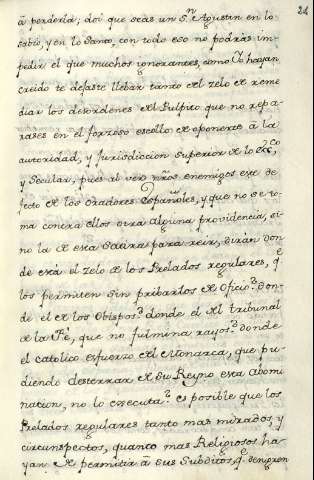 24
â perderia; doi que seas un Sn. Agustin en lo
sabio, y en lo Santo, con todo eso no podras im-
pedir el que muchos ignorantes, como Ct. hayan
creido te dejaste llebar tanto del zelo de reme
diar los desordenes del Pulpito que no repa-
rases en el forzoso escollo de oponerte â la
autoridad, y Jurisdiccion superior de lo Ecco.
y Secular; pues al ver nros enemigos este de
fecto de los Oradores Españoles, y que no se to-
ma contra ellos otra alguna providencia, si-
no la de esta Satira para reir, dirán don-
de esta el zelo de los Prelados regulares, qe.
los permiten sin pribarlos de Oficio? don-
de el de los Obispos? donde el del tribunal
de la Fê, que no fulmina rayos? donde
el catolico esfuerzo del Monarca, que pu-
diendo desterrar de su Reyno esta Abomi
nacion, no lo executa? es posible que los
Prelados regulares tanto mas mirados, y
circunspectos, quanto mas Religiosos ha-
yan de permitir â sus Subditos, qe. denigren